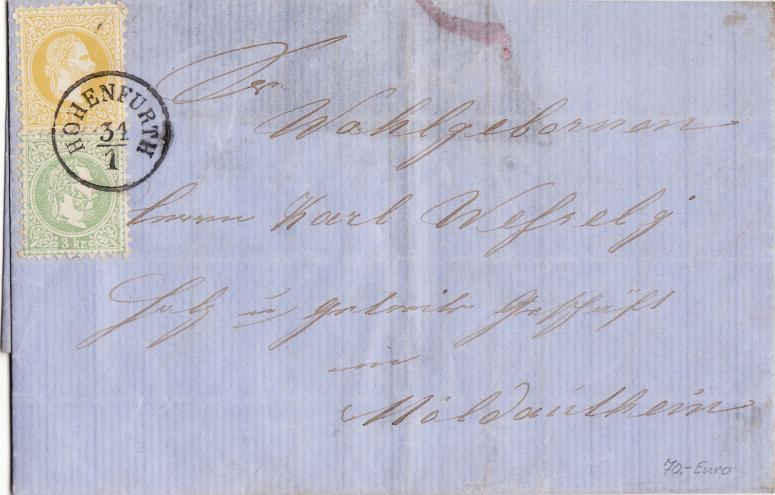 HOHENFURTH
31
1
3 kr.
Wohlgebornen
Herrn Karl
Salz u getreide Geschäft
in
Moldauthein
70,- Euro